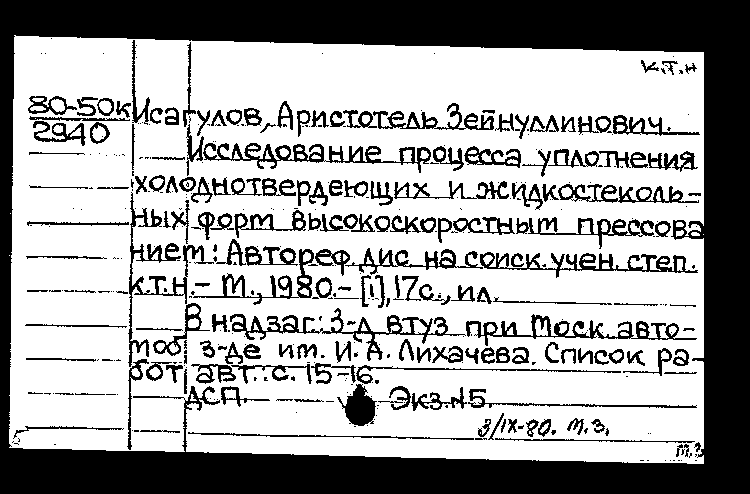 К.Т.Н
80-50к
2940
Исагулов, Аристотель Зейнуллинович.
Исследование процесса уплотнения
холоднотвердеющих и жидкостеколь-
ных форм высокоскоростным прессова
нием: Автореф. дис. на соиск. учен. степ.
к.т.н. - М., 1980. - [i], 17с., ил.
В надзаг.: З-д втуз при Моск. авто-
моб з-де им. И. А. Лихачёва. Список ра-
бот авт.: с. 15-16.
ДСП. Экз.№5.
3/IX-80. М.З.
М.З